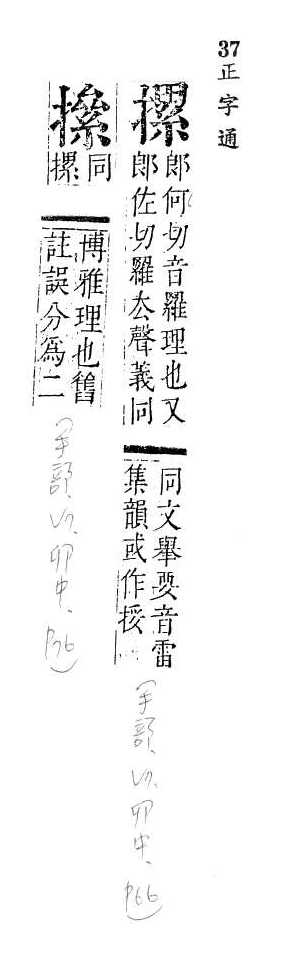 37
正字通
摞
郎何切音羅理也又
郎佐切羅厺聲義同
同文舉要音雷
集韻或作挼
(手部、卯中、p66)
同
摞
博雅理也舊
註誤分爲二
(手部、卯中、p36)